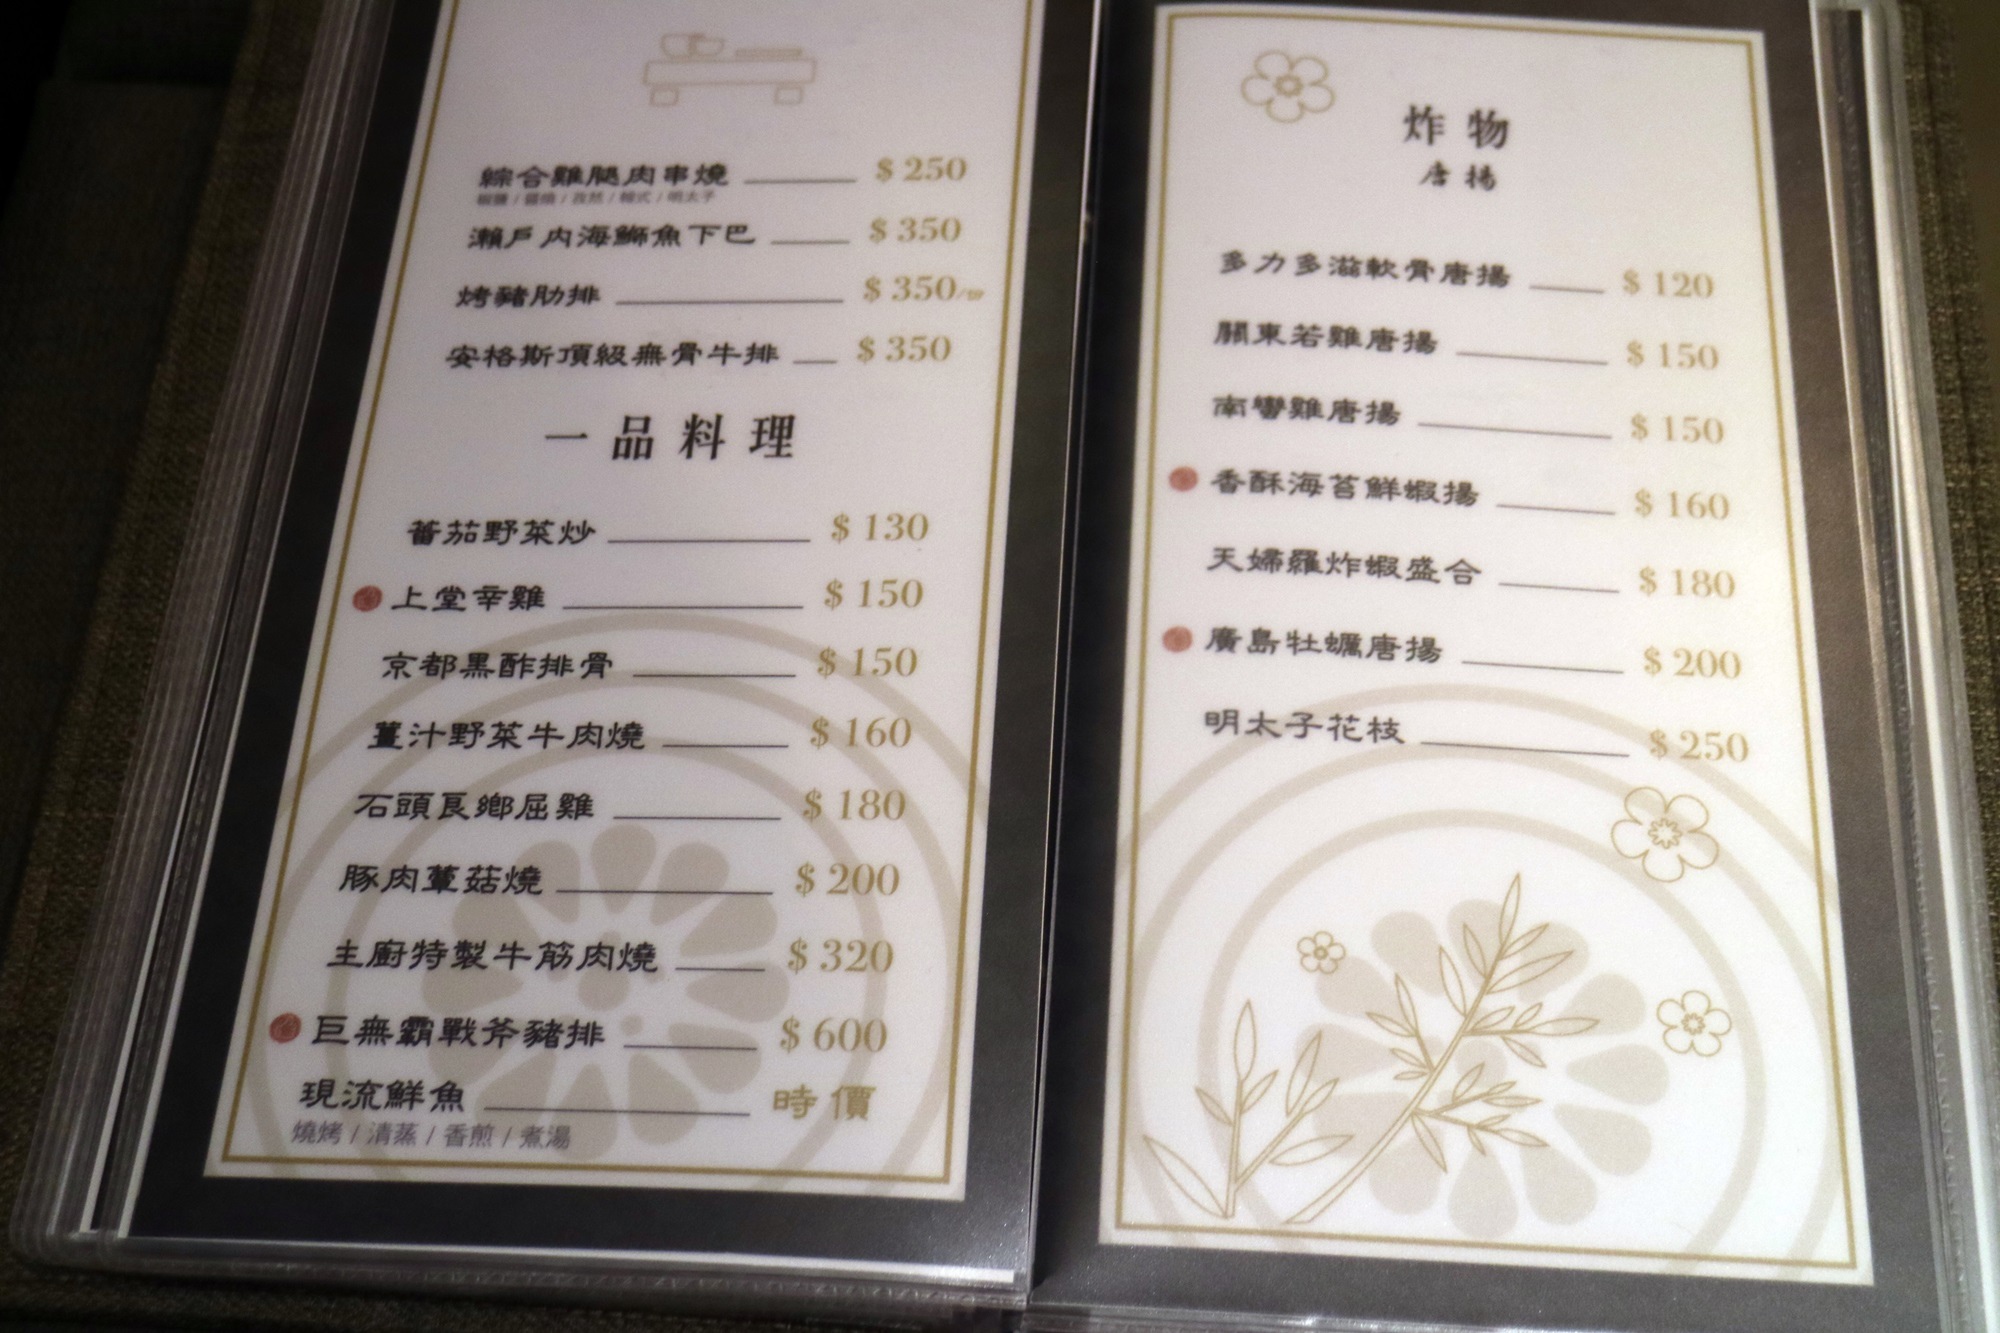 綜合雞腿肉串燒 $250
椒鹽 / 醬燒 / 孜然 / 韓式 / 明太子
瀨戶內海鰤魚下巴 $350
烤豬肋排 $350/份
安格斯頂級無骨牛排 $350
一品料理
蕃茄野菜炒 $130
上堂幸雞 $150
京都黑酢排骨 $150
薑汁野菜牛肉燒 $160
石頭良鄉屈雞 $180
豚肉蕈菇燒 $200
主廚特製牛筋肉燒 $320
巨無霸戰斧豬排 $600
現流鮮魚 時價
燒烤 / 清蒸 / 香煎 / 煮湯
炸物
唐揚
多力多滋軟骨唐揚 $120
關東若雞唐揚 $150
南蠻雞唐揚 $150
香酥海苔鮮蝦揚 $160
天婦羅炸蝦盛合 $180
廣島牡蠣唐揚 $200
明太子花枝 $250